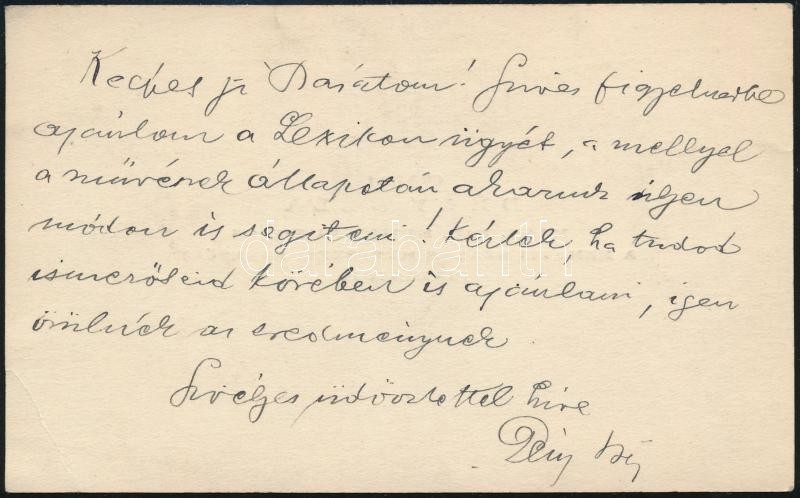 Kedves jó Barátom! Szíves figyelmedbe
ajánlom a Lexikon ügyét, a mellyel
a művészek állapotán akarunk ilyen
módon is segíteni! Kérlek, ha tudod
ismerőseid körében is ajánlani, igen
örülnék az eredménynek
Szívélyes üdvözlettel híve
darabanth